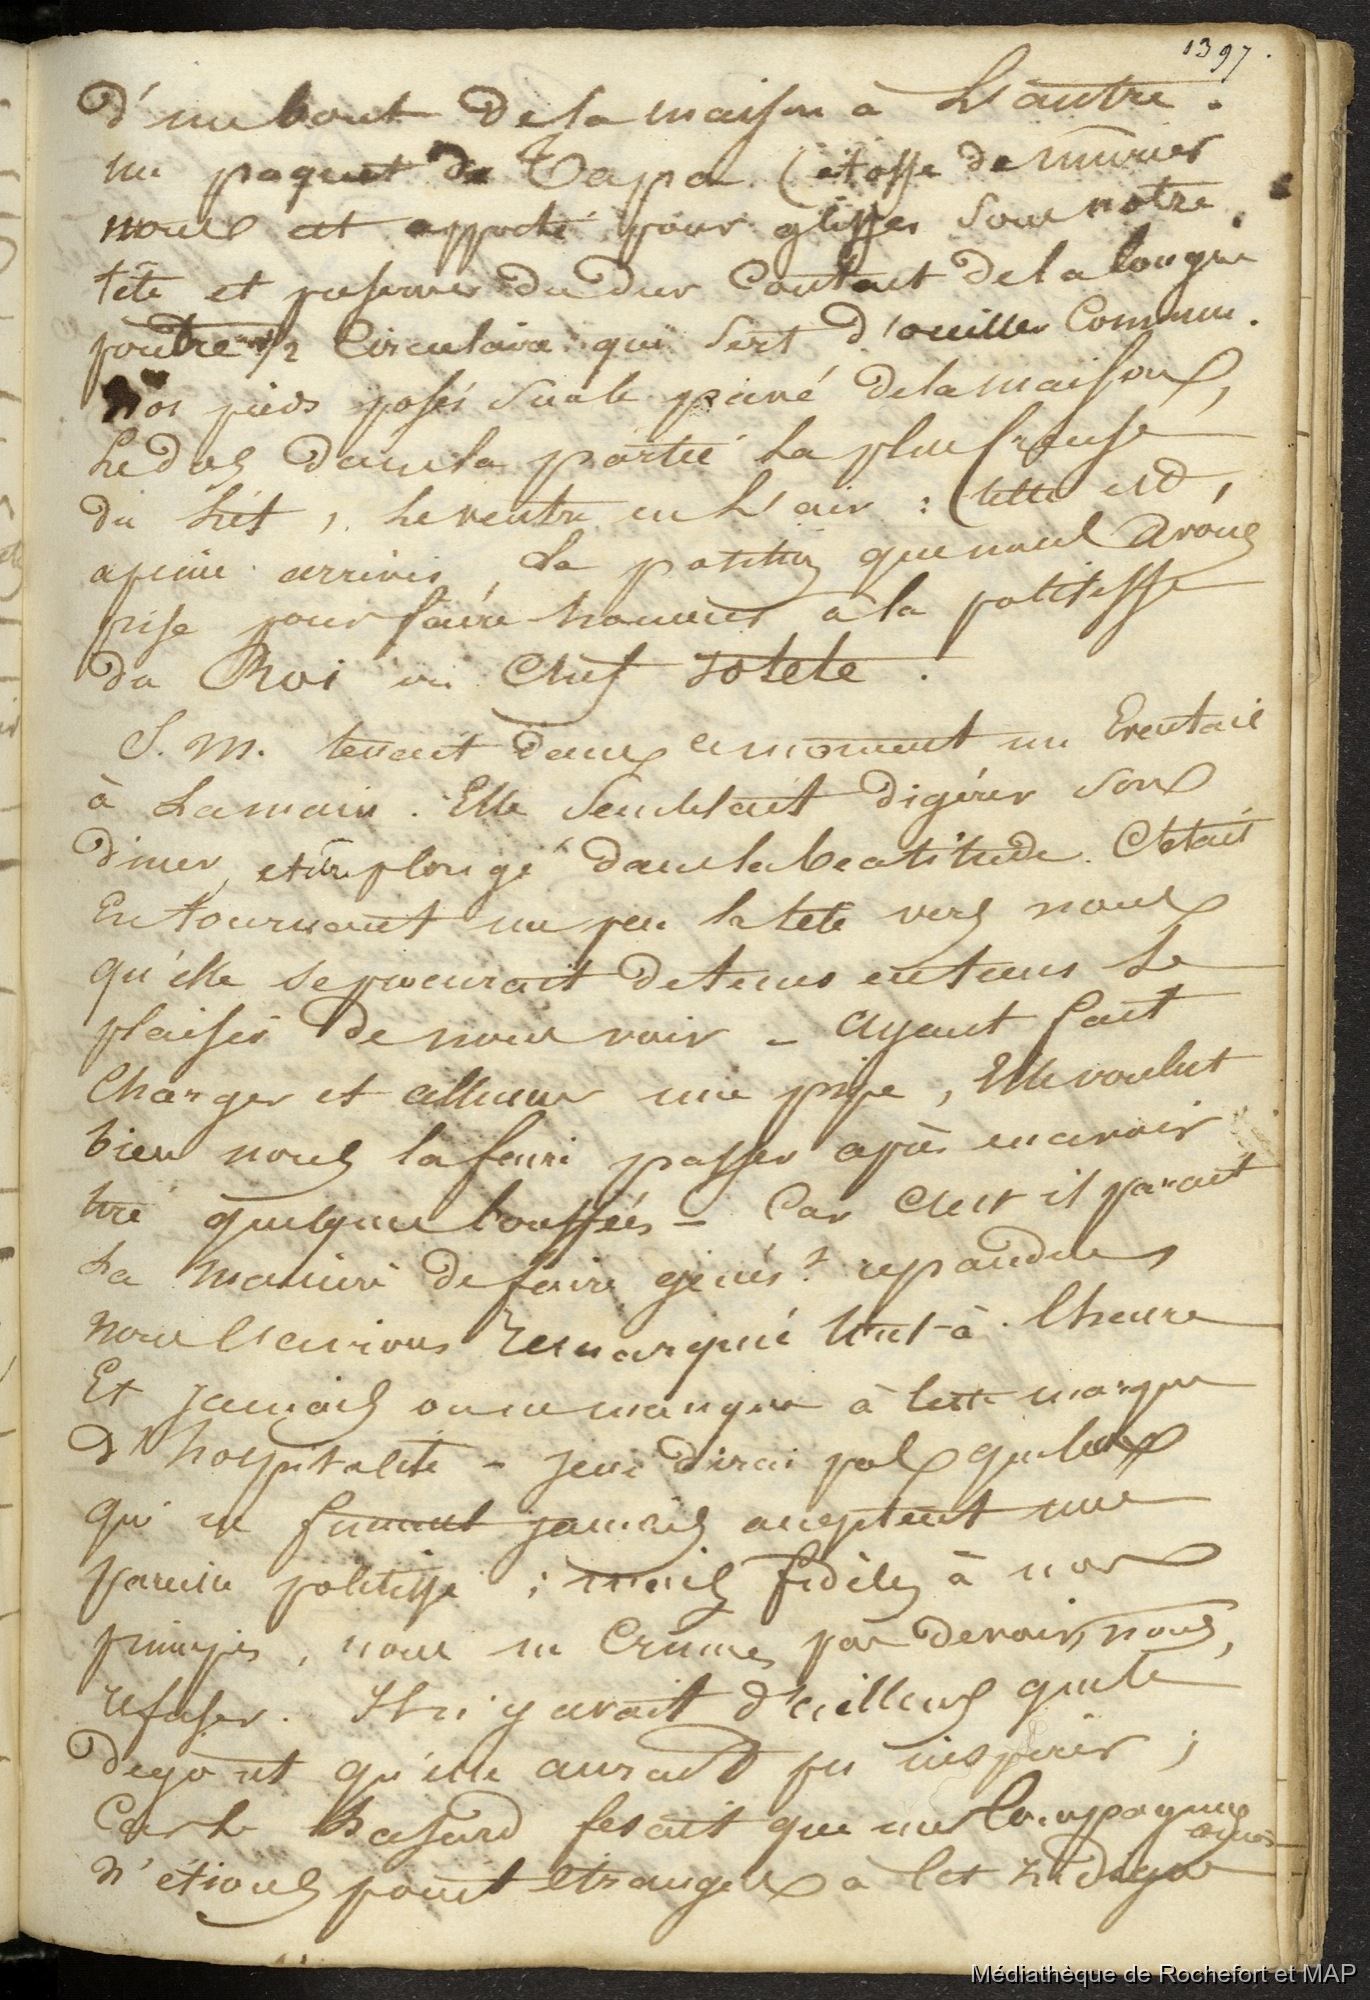 1397.
d'un bout de la maison à L'autre.
un paquet de Tapa (étoffe de murier
nous est apporté pour glisser sous notre
tête et preserver du dur Contact de la longue
poutre 1/2 Circulaire qui sert d'oreiller Commun.
Nos pieds posés sur le pavé de la maison,
Le dos dans la partie La plus Creuse
du Lit, Le ventre en L'air : Cette est,
a peine arrivés, La position que nous avons
prise pour faire honneur à la politesse
du Roi ou Chef Iotete.
S. M. tenait dans ce moment un Eventail
à La main. Elle semblait digérer son
diner, et être plongé dans la beatitude. C'etait
En tournant un peu la tête vers nous
qu'elle se procurait de tems en tems Le
plaisir de nous voir - Ayant fait
Charger et allumer une pipe, Elle voulut
bien nous la faire passer après en avoir
tiré quelques bouffées - Car C'est il parait
La maniere de faire génér.t repandue,
nous l'avions remarqué tout-à-l'heure
Et jamais on ne manque à cette marque
d'hospitalité - Je ne dirai pas que ceux
qui ne fument jamais acceptent une
pareille politesse ; mais fidèles à nos
principes, nous ne Crumes pas devoir, nous,
refuser. Il n'y avait d'ailleurs que le
degout qu'elle aurait pu inspirer ;
Car le hasard fesait que mes Compagnons
n'étions point étrangers à Cet